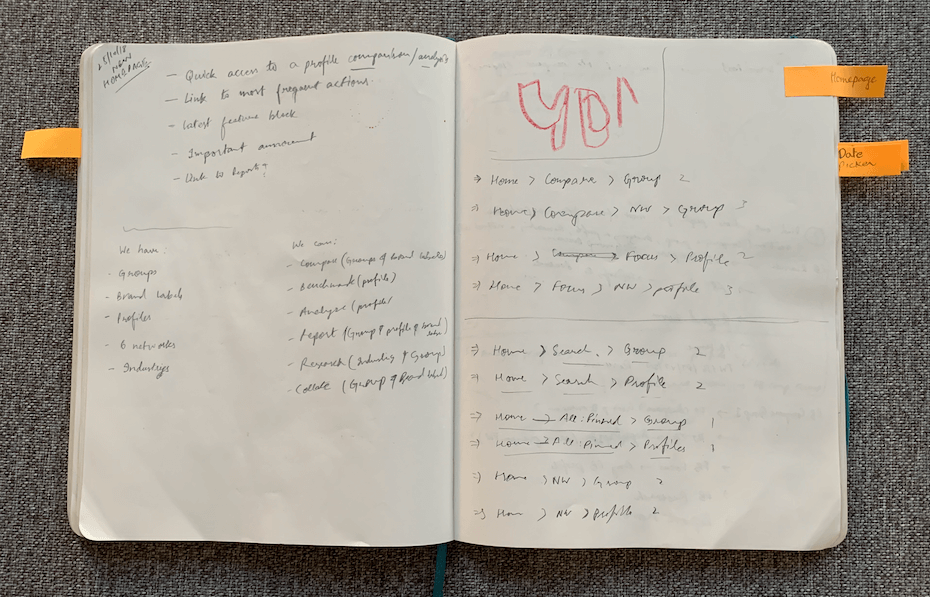 NEW
HOMEPAGE
- Quick access to a profile comparison/analysis
- Link to most frequent actions.
- Latest feature block
- Important announcement
- Link to Reports?
We have:
- Groups
- Brand Labels
- Profiles
- 6 networks
- Industrys
We can:
- Compare (Groups & Brand labels)
- Benchmark (profile)
- Analyze (profile)
- Report (Group & profile & brand label)
- Research (Industry & Group)
- Collate (Group & Brand label)
Homepage
Date
Picker
⇒ Home > Compare > Group 2
⇒ Home > Compare > NW > Group 3
⇒ Home > Compare > Focus > Profile 2
⇒ Home > Focus > NW > profile 3
⇒ Home > Search > Group 2
⇒ Home > Search > Profile 2
⇒ Home → All: Pinned > Group 1
⇒ Home → All: Pinned > Profiles 1
⇒ Home > NW > Group 2
⇒ Home > NW > profile 2